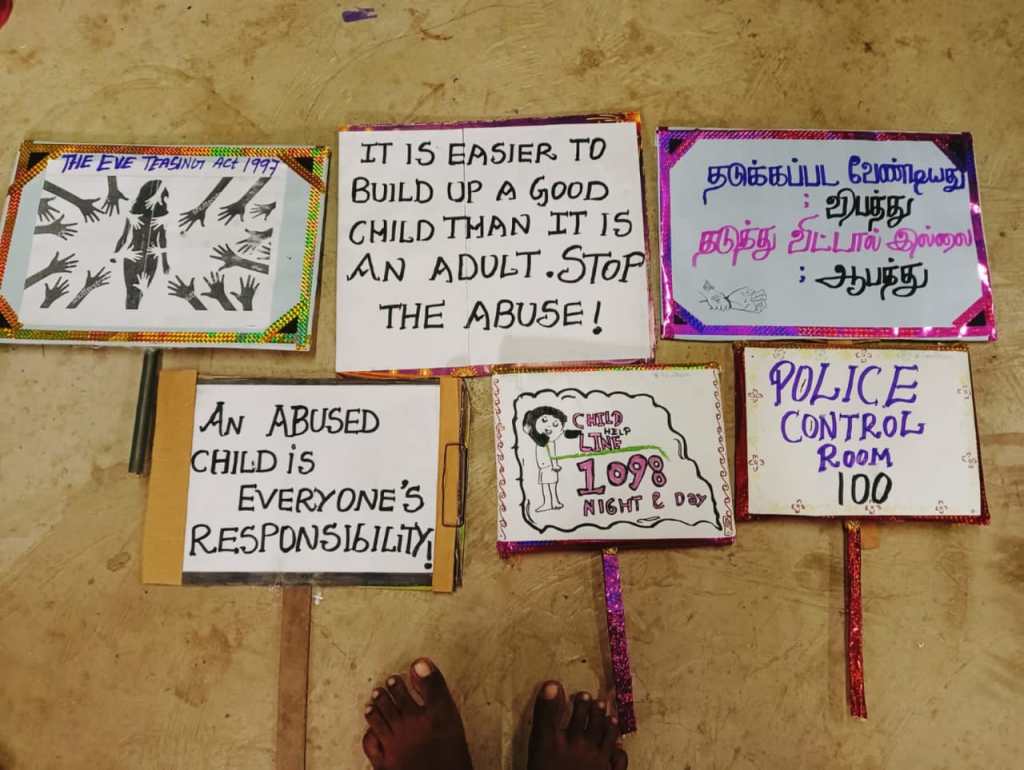 THE EVE TEASING ACT 1997
IT IS EASIER TO
BUILD UP A GOOD
CHILD THAN IT IS
AN ADULT. STOP
THE ABUSE!
தடுக்கப்பட வேண்டியது
; விபத்து
தடுத்து விட்டால் இல்லை
; ஆபத்து
AN ABUSED
CHILD iS
EVERYONE'S
RESPONSIBILITY!
CHILD
HELP
LINE
1098
NIGHT & DAY
POLICE
CONTROL
ROOM
100